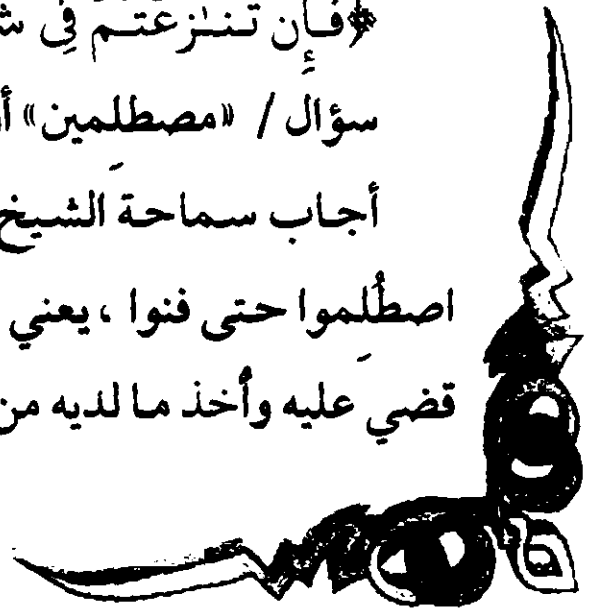 ﴿فَإِن تَنَـٰزَعْتُمْ فِى
سؤال / «مصطلِمين»
أجاب سماحة الشيخ
اصطُلِموا حتى فنوا ، يعني
قضي عليه وأُخذ ما لديه من